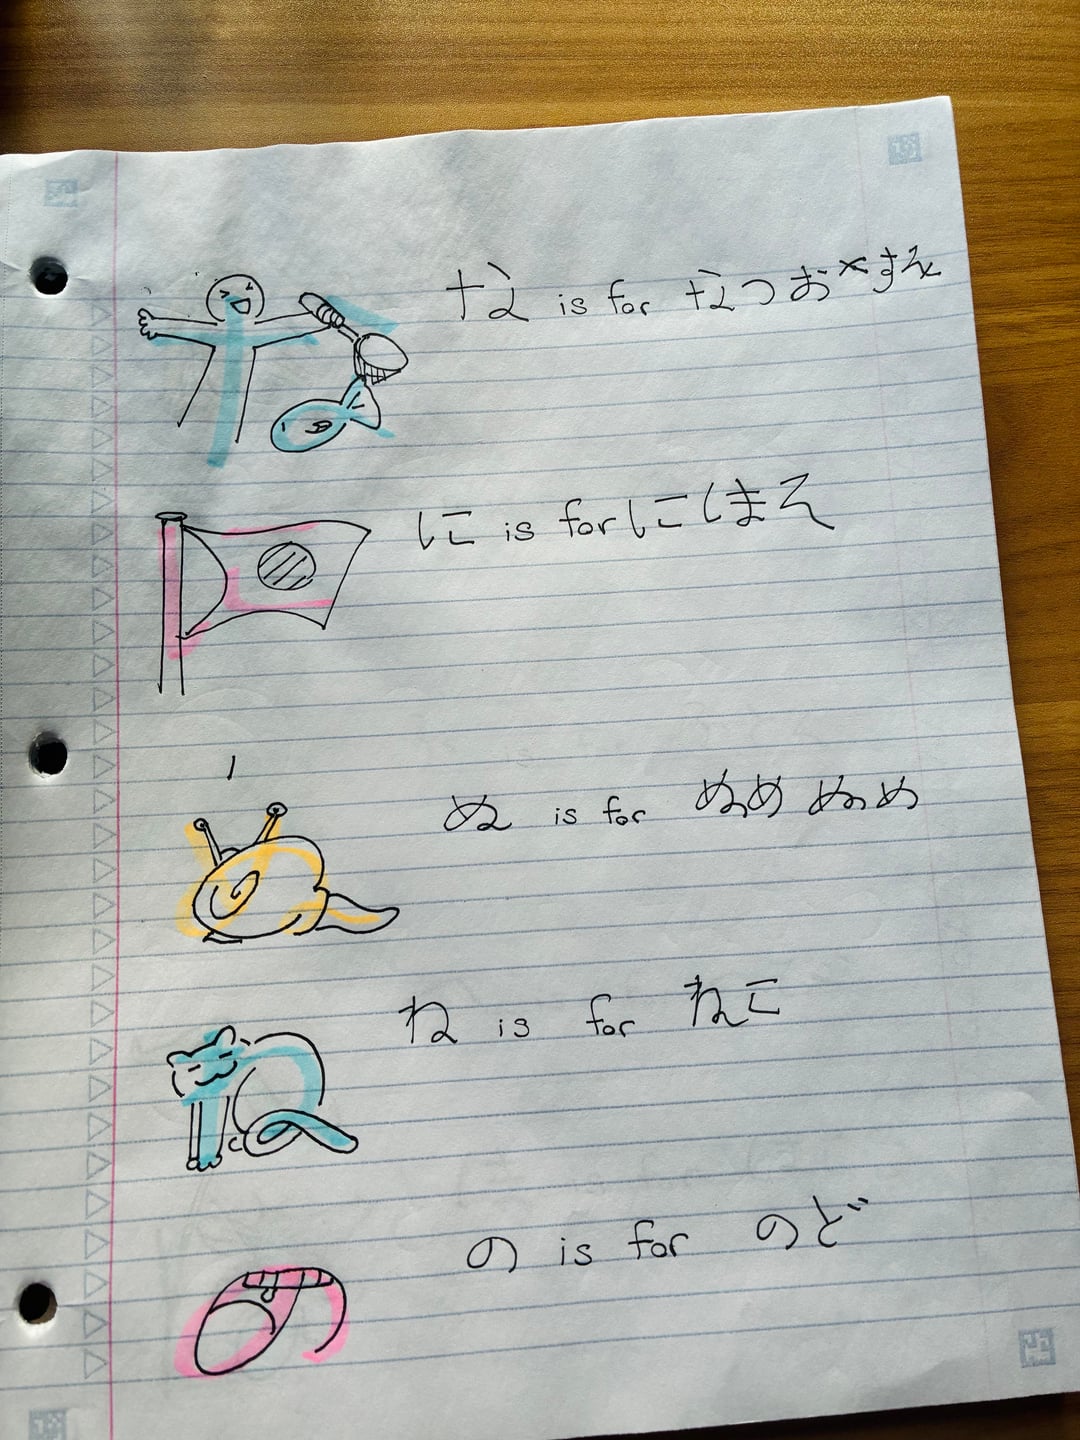 な is for
に is for にほん
ぬ is for ぬめ ぬめ
ね is for ねこ
の is for のど